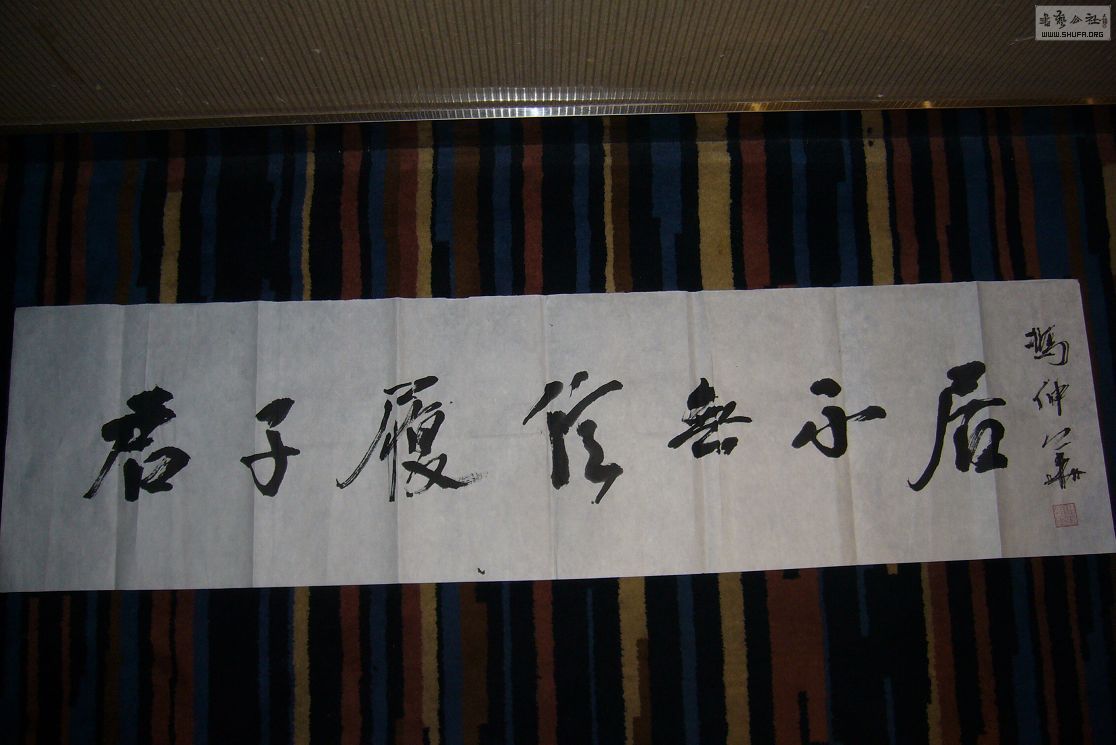 書藝公社
WWW.SHUFA.ORG
君子履信無不居
馮仲